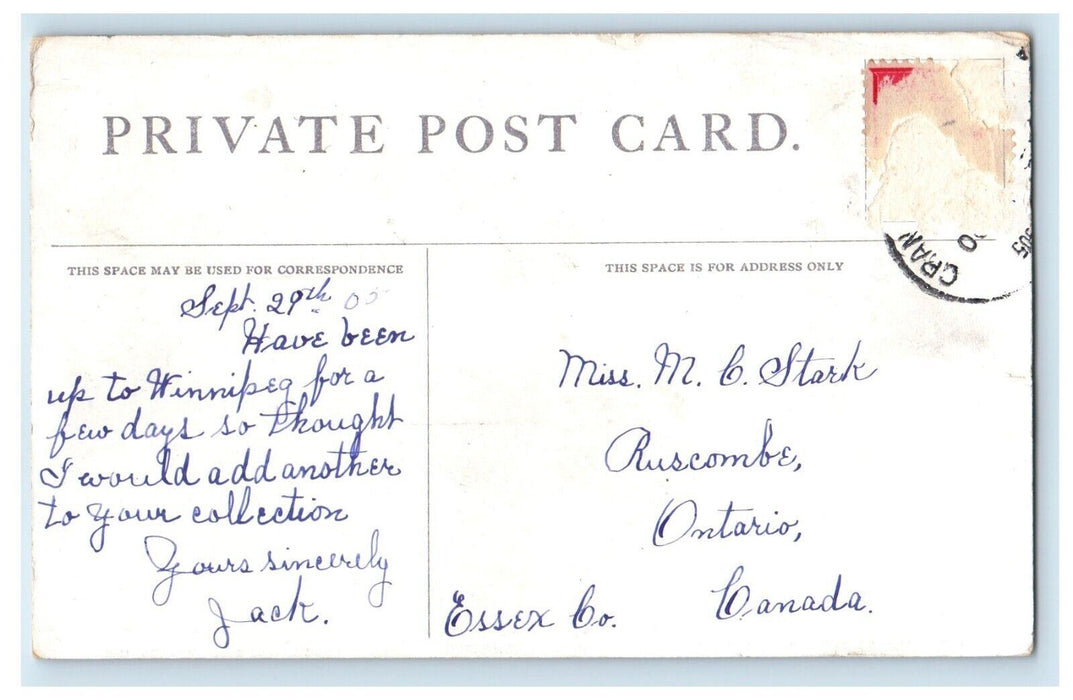 PRIVATE POST CARD.
THIS SPACE MAY BE USED FOR CORRESPONDENCE
Sept. 29th 05
Have been
up to Winnipeg for a
few days so thought
I would add another
to your collection
Yours sincerely
Jack.
THIS SPACE IS FOR ADDRESS ONLY
Miss. M. C. Stark
Ruscombe,
Ontario,
Essex Co. Canada.
CRAN